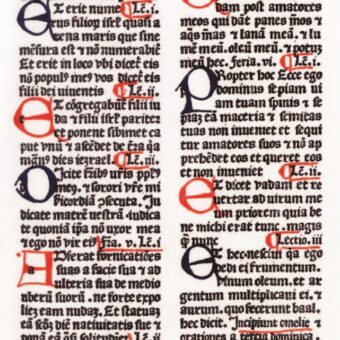 Et erit nume ¶ Lc̄.i.
rus filioꝝ isrł quasi a
rena maris que sine
mēsura est ⁊ nō numerabit̄
Et erit in loco vbi dicet̄ eis
nō populꝰ meꝰ vos dicet̄ eis
filii dei viuentis ¶ Lc̄.ii
Et cōgregabūt̄ filii iu
da ⁊ filii isrł pariter
et ponent sibimet ca
put vnū ⁊ ascēdēt de t̄ra q̄a
magnꝰ dies iezrael. ¶ Lc̄.iii.
Dicite fr̄ibꝰ vr̄is ppl̄s
meꝰ. ⁊ sorori vr̄e mi
sericordiā ꝓsecuta. Ju
dicate matrē vestrā: iudica
te quoniā ip̄a nō vxor mea
⁊ ego nō vir eiꝰ ¶ Fīa. v. Lc̄.i
Auferat fornicatiōes
suas a facie sua ⁊ ad
ulteria sua de medio
vberū suorū. ne forte expo
liez eam nudaz. Et statuaz
eā scđꝫ diē natiuitatis sue ⁊
ponā eā q̄si solitudiez ¶ Lc̄.ii
dam post amatores
meos qui dāt panes mīos ⁊
aq̄s meas ⁊ lanā meā. ⁊ lu
mē meū. oleū meū. ⁊ potuꝫ
meū hec. Feria. vi. ¶ Lc̄.i.
Propter hoc Ecce ego
dominus sepiam vi
am tuam spinis ⁊ se
piaz eā maceria ⁊ semitas
tuas non inueniet et seque
tur amatores suos ⁊ nō ap
prehēdet eos et queret eos
et non inueniet ¶ Lc̄.ii.
Et dicet vadam et re
uertar ad virum me
um priorem quia be
ne michi erat tunc. magis
q̄ꝫ nunc ¶ Lectio.iii
Et hec nesciui q̄a ego
dedi ei frumentum.
vinum. oleum. et ar
gentum multiplicaui ei. ⁊
aurum. quo fecerunt baal.
hec dicit. Incipiunt omelie ⁊
orationes a tercia dominica.